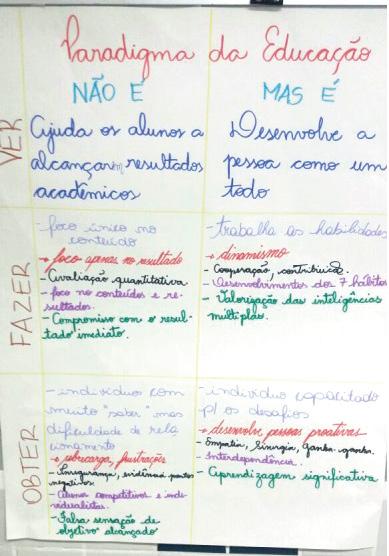 Paradigma da Educação
NÃO É
MAS É
VER
Ajuda os alunos a
alcançarem resultados
acadêmicos
Desenvolve a
pessoa como um
todo
FAZER
- foco único no
conteúdo
→ foco apenas no resultado
- Avaliação quantitativa
- foco no conteúdos e re-
sultados.
- Compromisso com o resul-
tado imediato.
- trabalha as habilidades
→ dinamismo
- Cooperação,
- Desenvolvimentos dos 7 hábitos
- Valorização das inteligências
múltiplas.
OBTER
- indivíduo com
muito "saber" mas
dificuldade de rela
cionamento
→ sobrecarga, frustrações
- Insegurança, evidência pontos
negativos.
- Alunos competitivos e indi-
vidualistas.
- Falsa sensação de
objetivo alcançado
- indivíduo capacitado
p/ os desafios
→ desenvolve pessoas proativas
- Empatia, Sinergia, ganha-ganha.
- Interdependência.
- Aprendizagem significativa